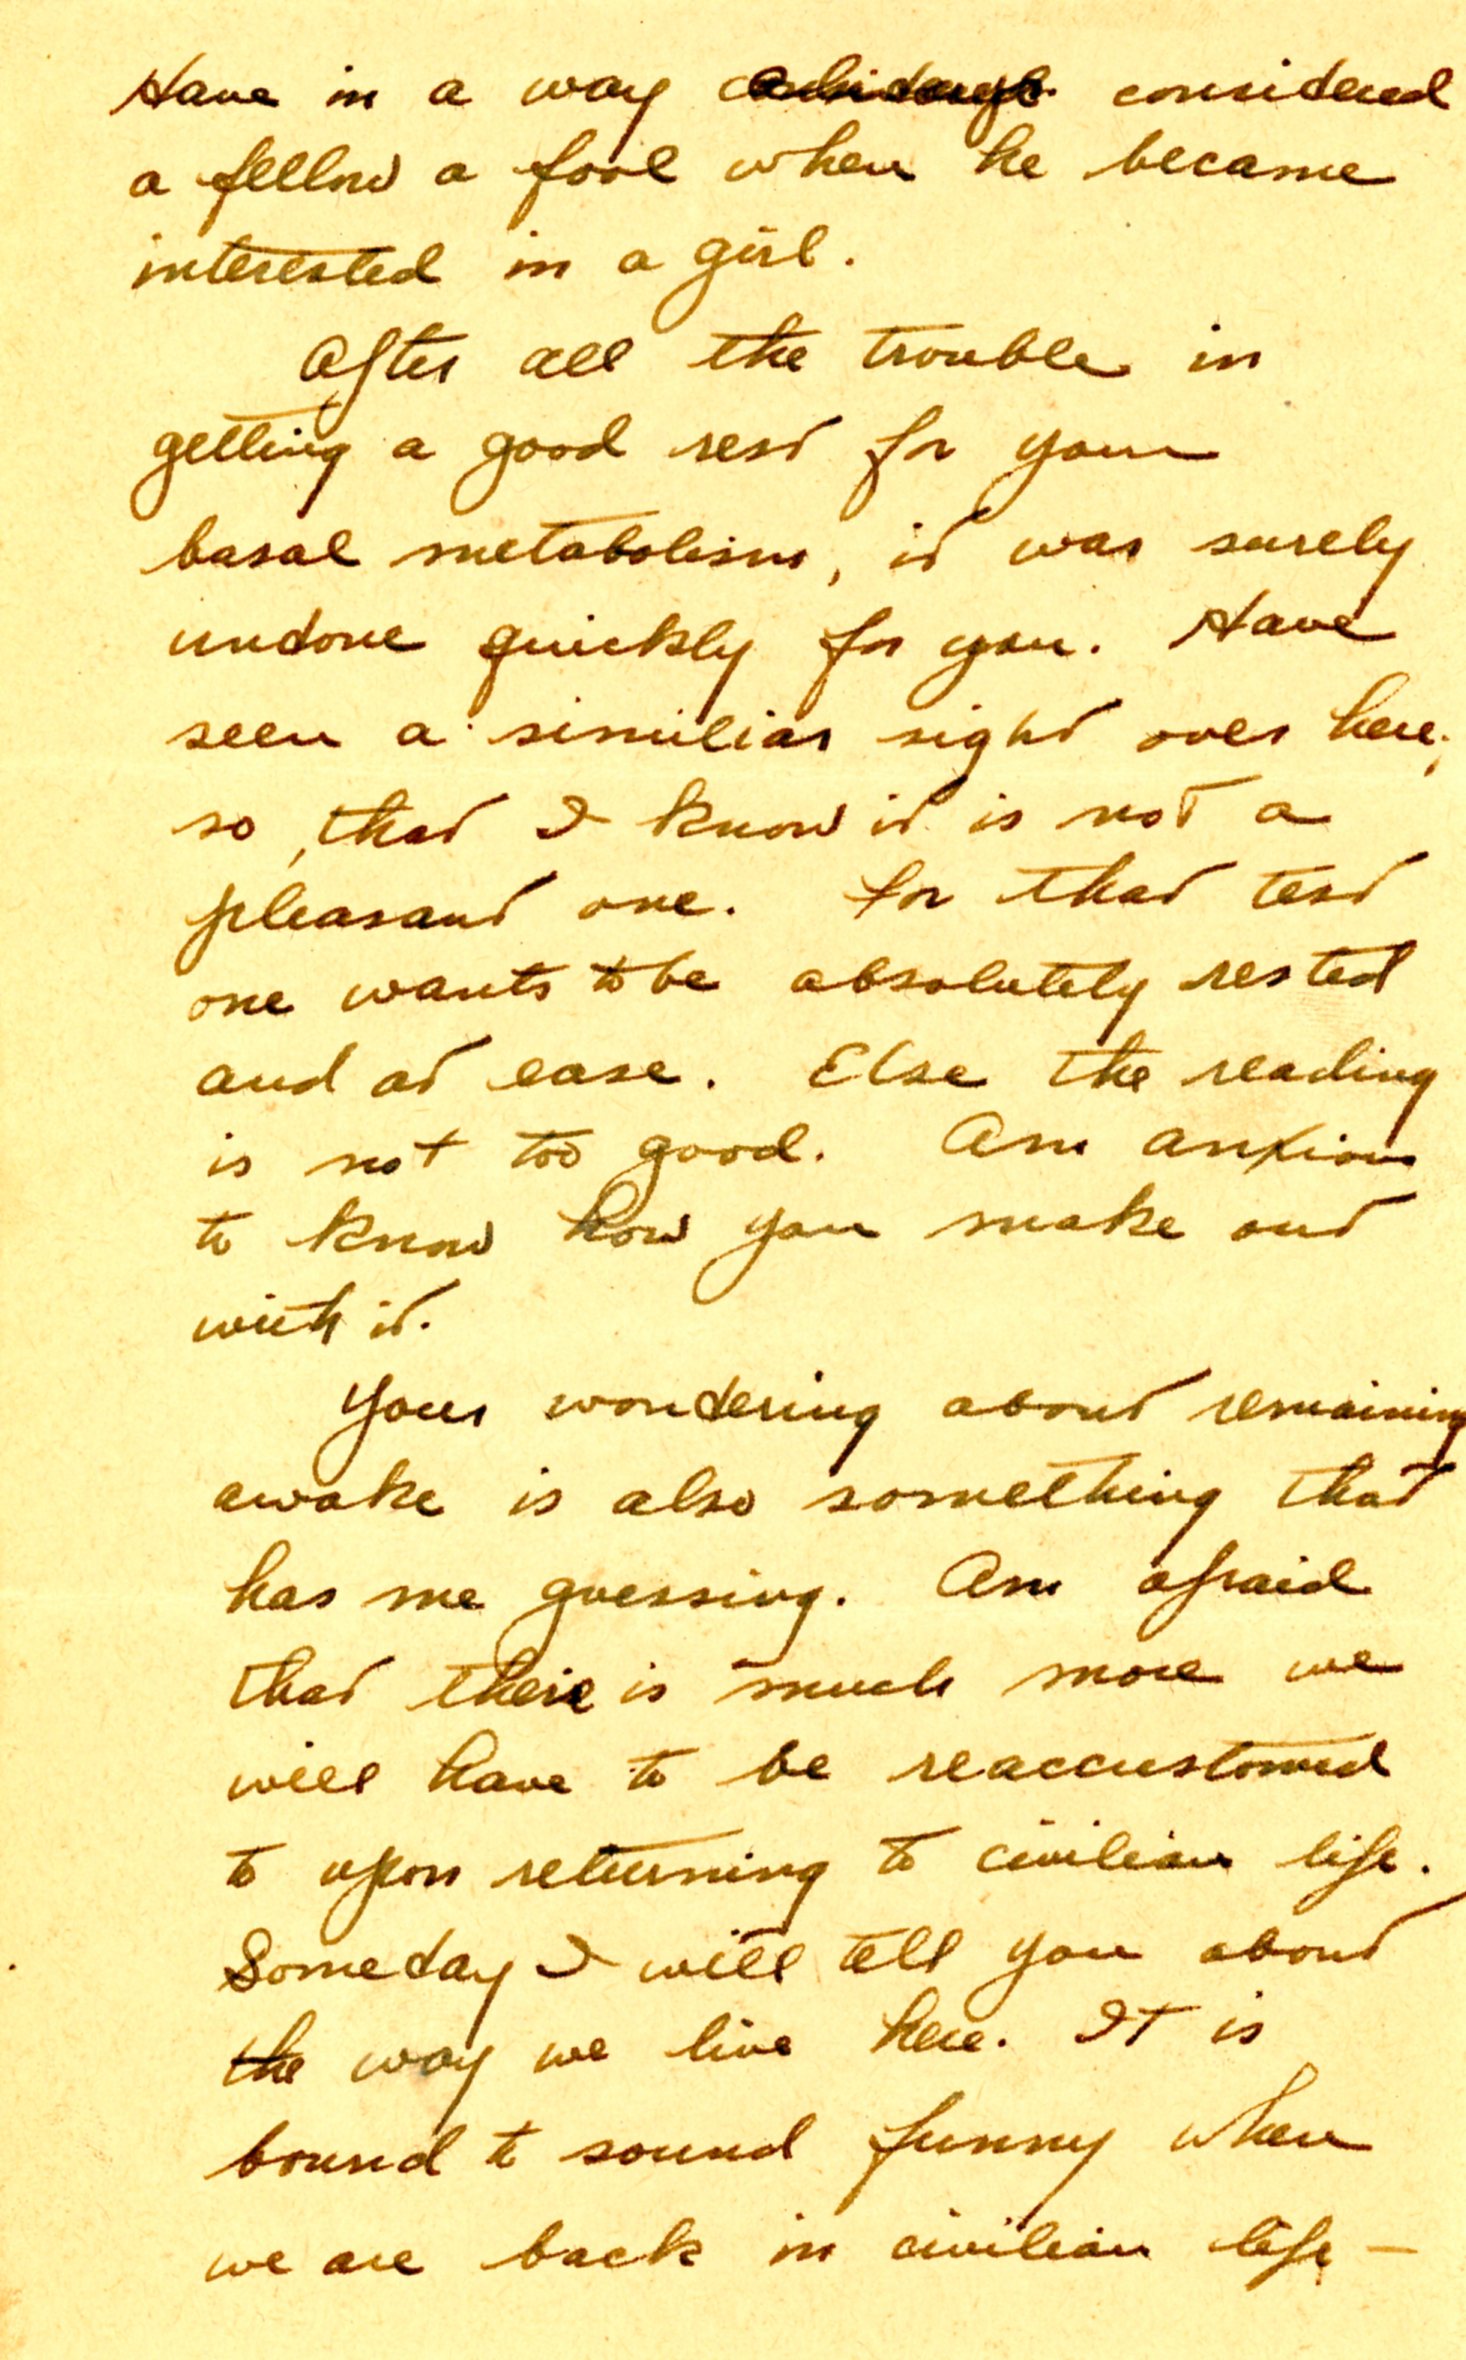 Have in a way considered
a fellow a fool when he became
interested in a girl.
After all the trouble in
getting a good rest for your
basal metabolism, it was surely
undone quickly for you. Have
seen a similiar sight over here,
so, that I know it is not a
pleasant one. For that test
one wants to be absolutely rested
and at ease. Else the reading
is not too good. Am anxious
to know how you make out
with it.
Your wondering about remaining
awake is also something that
has me guessing. Am afraid
that there is much more we
will have to be reaccustomed
to upon returning to civilian life.
Someday I will tell you about
the way we live here. It is
bound to sound funny when
we are back in civilian life —